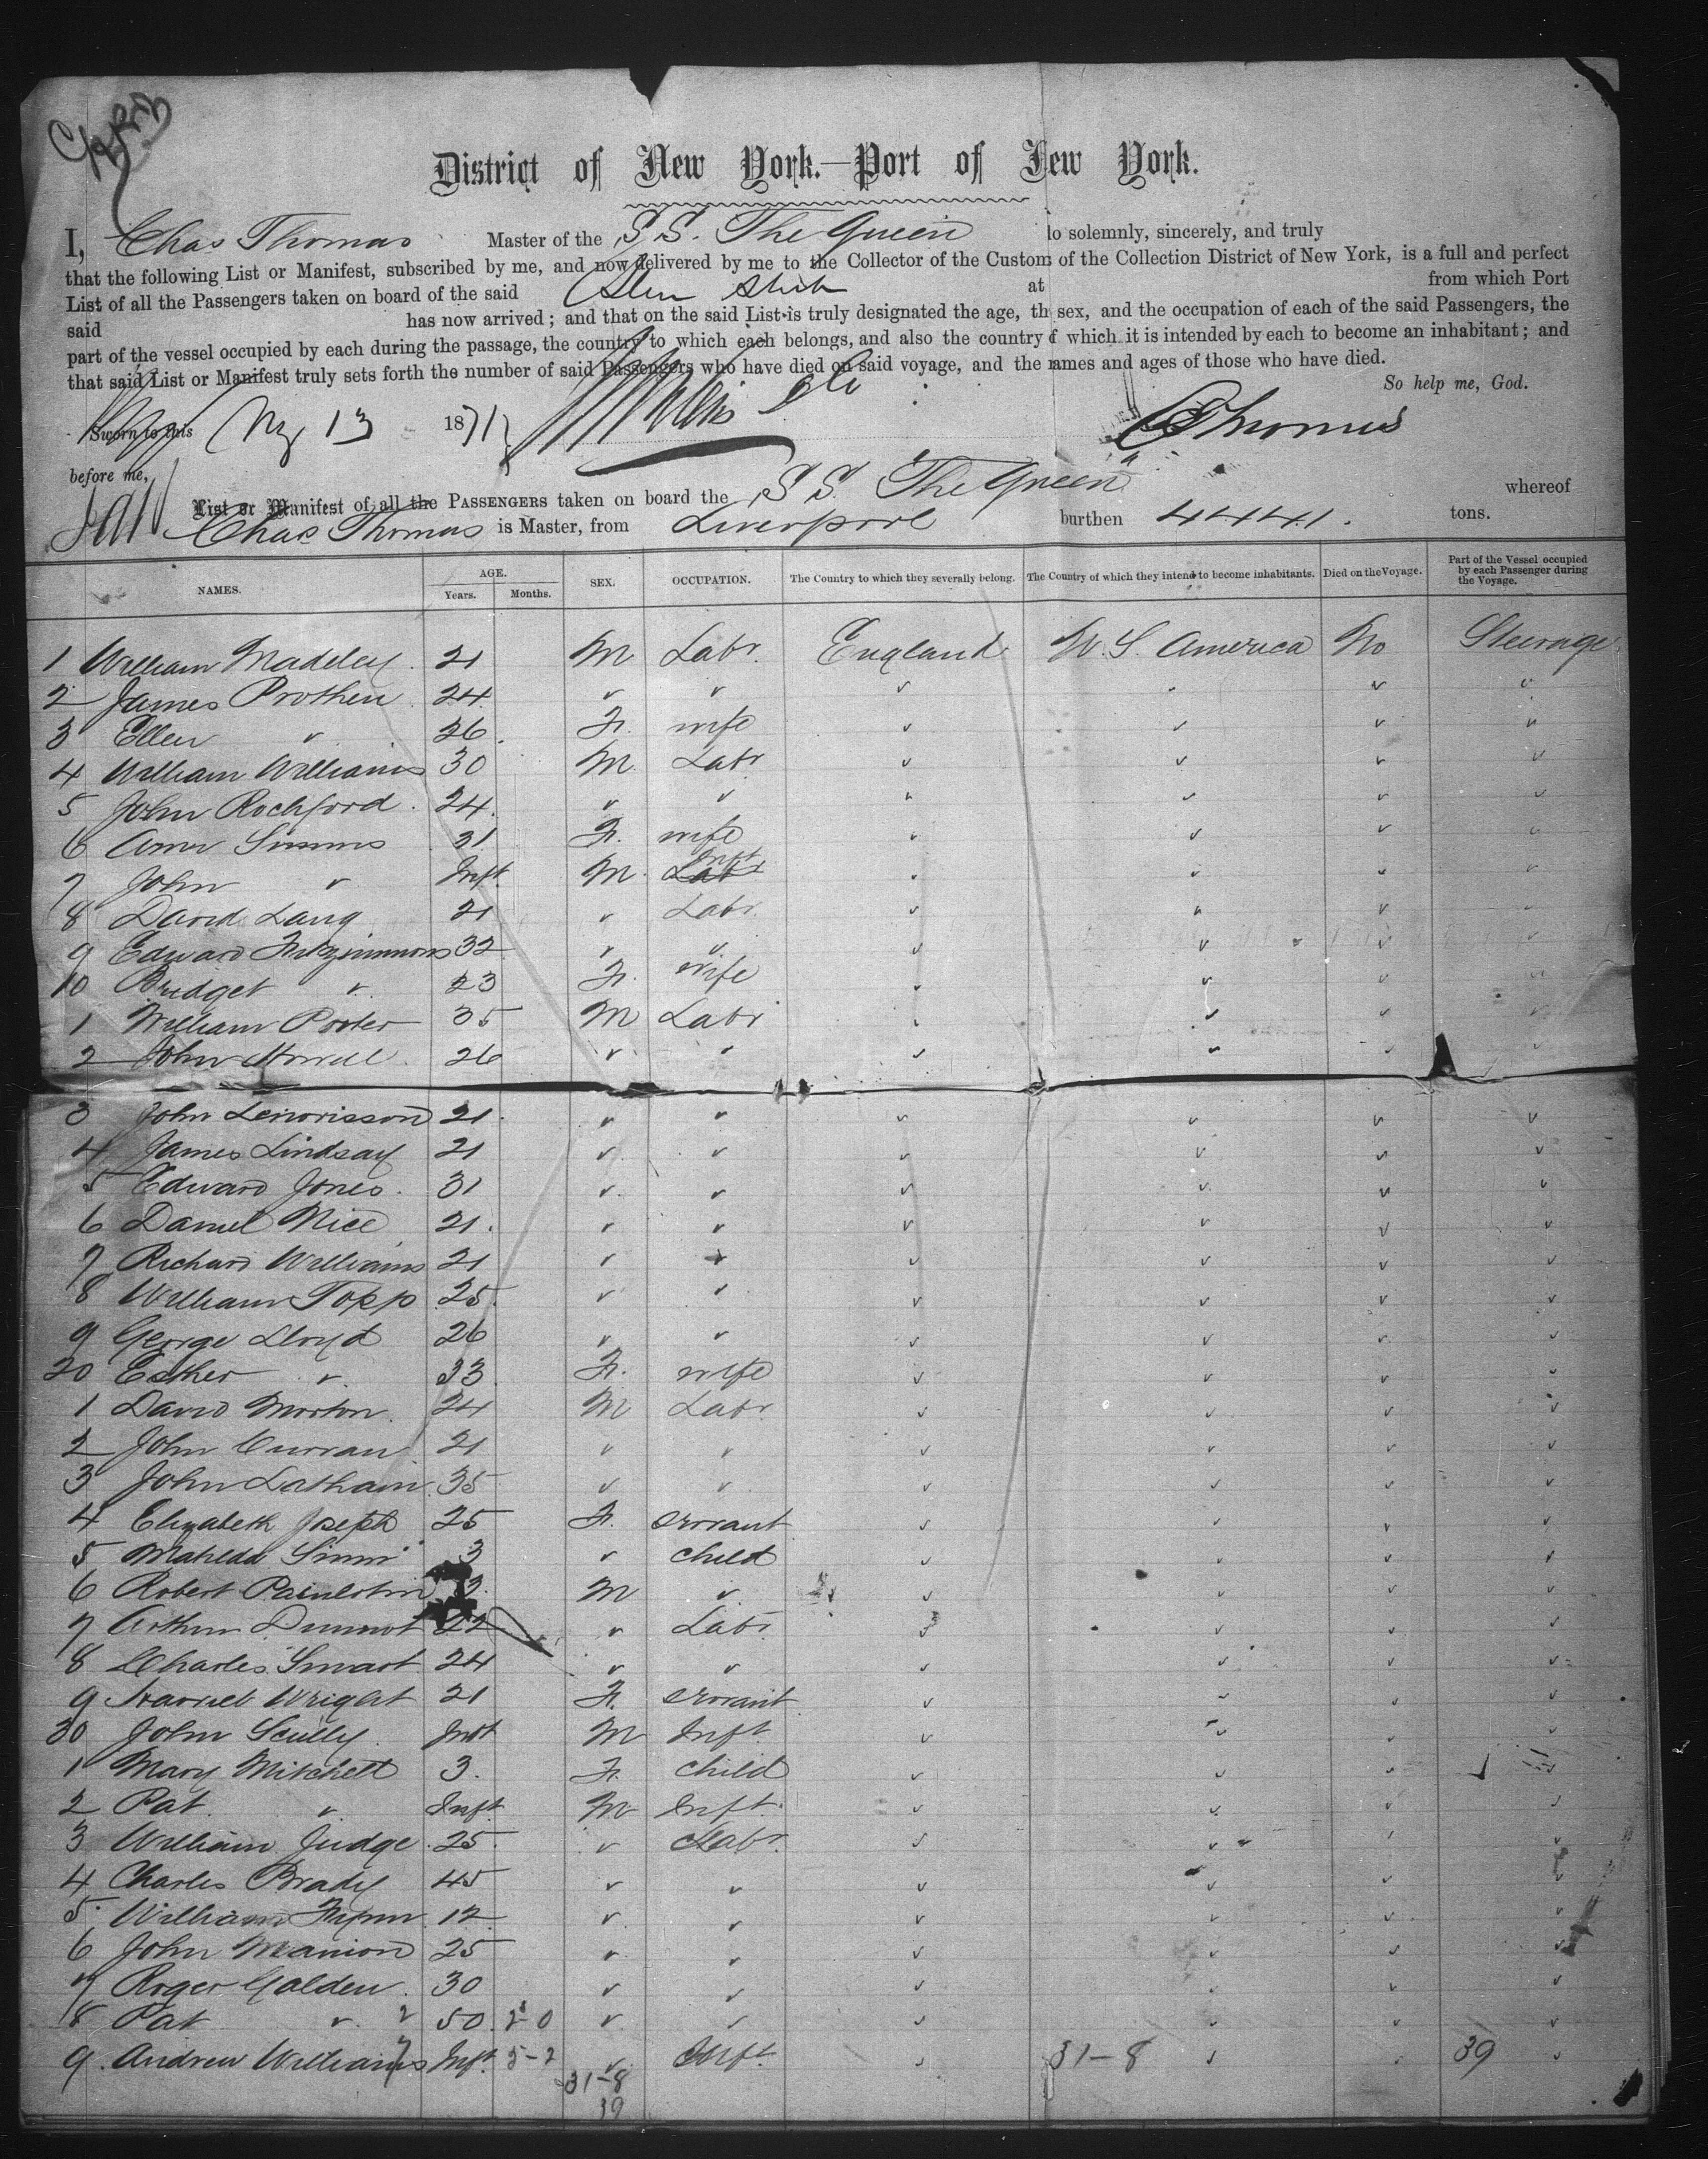 District of New York.—Port of New York.
I, Chas Thomas Master of the S.S. The Queen do solemnly, sincerely, and truly
that the following List or Manifest, subscribed by me, and now delivered by me to the Collector of the Custom of the Collection District of New York, is a full and perfect
List of all the Passengers taken on board of the said at from which Port
said has now arrived; and that on the said List is truly designated the age, th sex, and the occupation of each of the said Passengers, the
part of the vessel occupied by each during the passage, the country to which each belongs, and also the country f which it is intended by each to become an inhabitant; and
that said List or Manifest truly sets forth the number of said Passengers who have died on said voyage, and the names and ages of those who have died.
So help me, God.
Sworn to this 13 1871 CThomas
before me,
List or Manifest of all the PASSENGERS taken on board the S S. The Queen whereof
Chas Thomas is Master, from Liverpool burthen 4441. tons.
NAMES. AGE. Years. Months. SEX. OCCUPATION. The Country to which they severally belong. The Country of which they intend to become inhabitants. Died on the Voyage. Part of the Vessel occupied by each Passenger during the Voyage.
1 William Madeley 21 M Labr. England U.S. America No Steerage
2 James 24 " " " " " "
3 Ellen " 26 F. wife " " " "
4 William Williams 30 M Labr " " " "
5 John Rochford 24 " " " " " "
6 31 F. wife " " " "
7 John " Inft. M Inft " " " "
8 David Lang 21 " Labr " " " "
9 Edward Fitzsimmons 32 " " " " " "
10 Bridget " 23 F. wife " " " "
1 William Porter 35 M Labr " " " "
2 John 26 " " " " " "
3 John 21 " " " " " "
4 James Lindsay 21 " " " " " "
5 Edward Jones 31 " " " " " "
6 Daniel Rice 21 " " " " " "
7 Richard Williams 21 " " " " " "
8 William Topp 25 " " " " " "
9 George Lloyd 26 " " " " " "
20 Esther " 23 F. wife " " " "
1 David Morton 24 M Labr " " " "
2 John Curran 21 " " " " " "
3 John Latham 35 " " " " " "
4 Elizabeth Joseph 25 F. servant " " " "
5 Matilda 3 " child " " " "
6 Robert 3 M " " " " "
7 Arthur 22 " Labr " " " "
8 Charles Smart 24 " " " " " "
9 Harriet Wright 21 F. servant " " " "
30 John Scully Inft M Inft " " " "
1 Mary Mitchell 3. F. child " " " "
2 Pat " Inft M Inft. " " " "
3 William Judge 25 " Labr. " " " "
4 Charles Brady 45 " " " " " "
5 William 12 " " " " " "
6 John Manion 25 " " " " " "
7 Roger Golden 30 " " " " " "
8 Pat " 50 " " " " " "
9 Andrew Williams Inft. 5-2 " Inft. " 31-8 " " 39 "
31-8
39